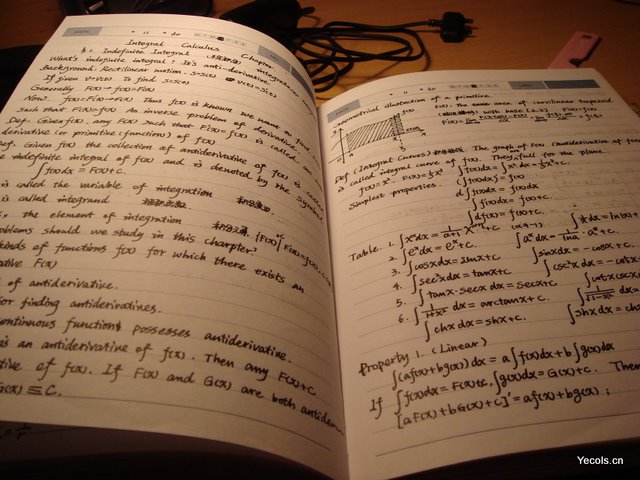 DATE 11 30
Integral Calculus Chapter
§1. Indefinite Integral
What's indefinite integral? It's anti-derivative
Background. Rectilinear motion. S=S(t)
If given v=v(t) To find S=S(t)
Generally F(x)→f(x)=F'(x)
Now. f(x)=F'(x)→F(x) Thus f(x) is known we want to find
such that F'(x)=f(x). An inverse problem of derivative.
Def. Given f(x), any F(x) such that F'(x)=f(x) is called
derivative (or primitive (function)) of f(x)
Def. Given f(x) the collection of antiderivative of f(x) is called
indefinite integral of f(x) and is denoted by the symbol
∫f(x)dx = F(x)+C.
is called the variable of integration
is called integrand
the element of integration
problems should we study in this charpter?
kinds of functions f(x) for which there exists an
F(x)
of antiderivative.
for finding antiderivatives.
continuous function possesses antiderivative.
is an antiderivative of f(x). Then any F(x)+C
of f(x). If F(x) and G(x) are both antider-
G(x) ≡ C.
DATE 11 30
Geometrical illustration of a primitive.
F(x): The same area of curvilinear trapezoid
with base [a,x] F'(x)=f(x)
Def (Integral Curves) The graph of F(x) (antiderivative of f(x))
is called integral curve of f(x). They full for the plane.
f(x)=x² F(x)=⅓x³ ∫f(x)dx=∫x²dx=⅓x³+C.
Simplest properties. (∫f(x)dx)'=f(x)
d∫f(x)dx=f(x)dx
∫f'(x)dx=f(x)+C.
∫df(x)=f(x)+C.
Table. 1. ∫xᵅdx=1/(α+1) xᵅ⁺¹+C (α≠-1)
2. ∫eˣdx=eˣ+C. ∫aˣdx=1/lna · aˣ+C.
3. ∫cosxdx=sinx+C ∫sinxdx=-cosx+C.
4. ∫sec²xdx=tanx+C ∫csc²xdx=-cotx
5. ∫tanx·secxdx=secx+C
6. ∫1/(1+x²) dx=arctanx+C.
∫chxdx=shx+C. ∫shxdx=chx
Property 1. (Linear)
∫(af(x)+bg(x))dx=a∫f(x)dx+b∫g(x)dx
If ∫f(x)dx=F(x)+C, ∫g(x)dx=G(x)+C. Then
[aF(x)+bG(x)+C]'=af(x)+bg(x);
Yecols.cn